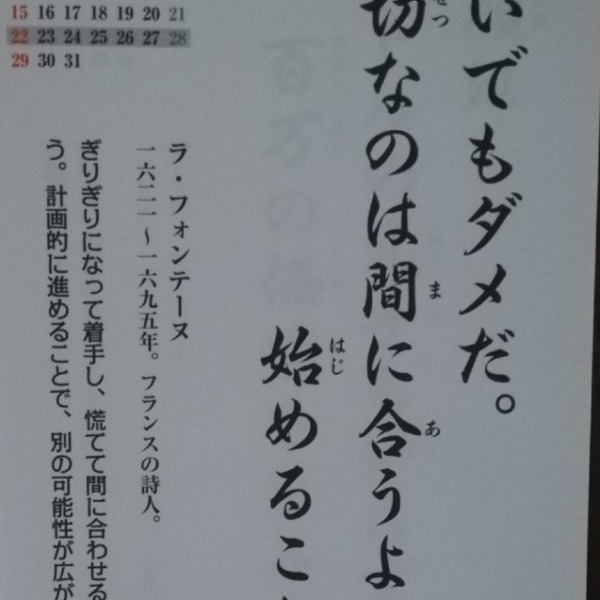 15 16 17 18 19 20 21
22 23 24 25 26 27 28
29 30 31
いでもダメだ。
切なのは間に合うよ
せつ
ま
あ
始めるこ
はじ
ラ・フォンテーヌ
一六二一~一六九五年。フランスの詩人。
ぎりぎりになって着手し、慌てて間に合わせる
う。計画的に進めることで、別の可能性が広が